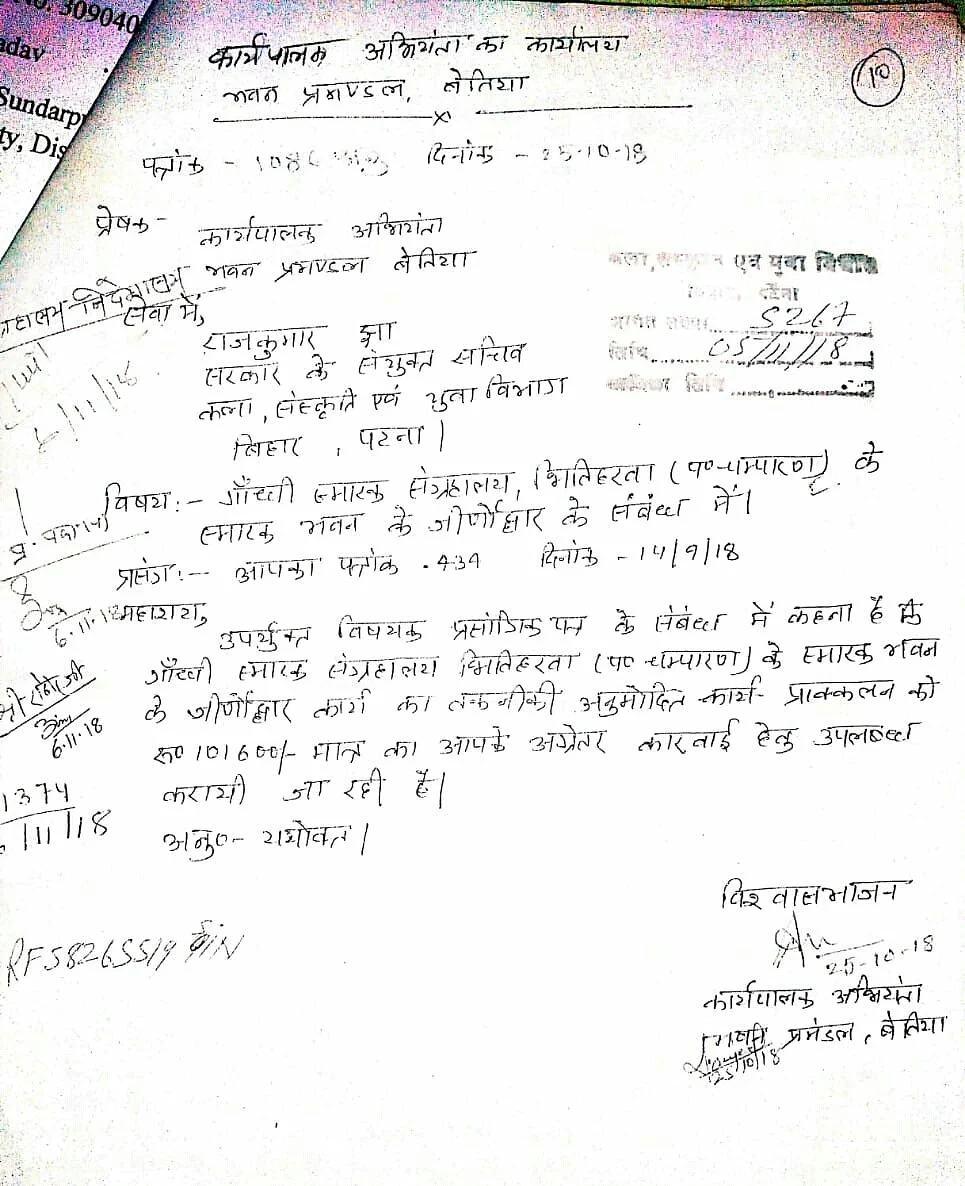 309040
aday
Sundarp
ty, Dis
कार्यपालक अभियंता का कार्यालय
भवन प्रमण्डल, बेतिया
x
10
पत्रांक - दिनांक - 25-10-18
प्रेषक -
कार्यपालक अभियंता
भवन प्रमण्डल बेतिया
सेवा में,
राजकुमार झा
सरकार के संयुक्त सचिव
कला, संस्कृति एवं युवा विभाग
बिहार, पटना।
एवं युवा विभाग
पटना
S267
तिथि 05/11/18
तिथि
विषय :- गाँधी स्मारक संग्रहालय, भितिहरवा (प० चम्पारण) के
स्मारक भवन के जीर्णोद्धार के संबंध में।
प्रसंग :- आपका पत्रांक - 434 दिनांक - 14/9/18
महाशय,
6.11.18
उपर्युक्त विषयक प्रसांगिक पत्र के संबंध में कहना है कि
गाँधी स्मारक संग्रहालय भितिहरवा (प० चम्पारण) के स्मारक भवन
के जीर्णोद्धार कार्य का तकनीकी अनुमोदित कार्य प्राक्कलन को
रू० 101600/- मात्र का आपके अग्रेतर कारवाई हेतु उपलब्ध
करायी जा रही है।
अनु०- यथोक्त।
6.11.18
1374
/11/18
विश्वासभाजन
25-10-18
कार्यपालक अभियंता
प्रमंडल, बेतिया
25/10/18